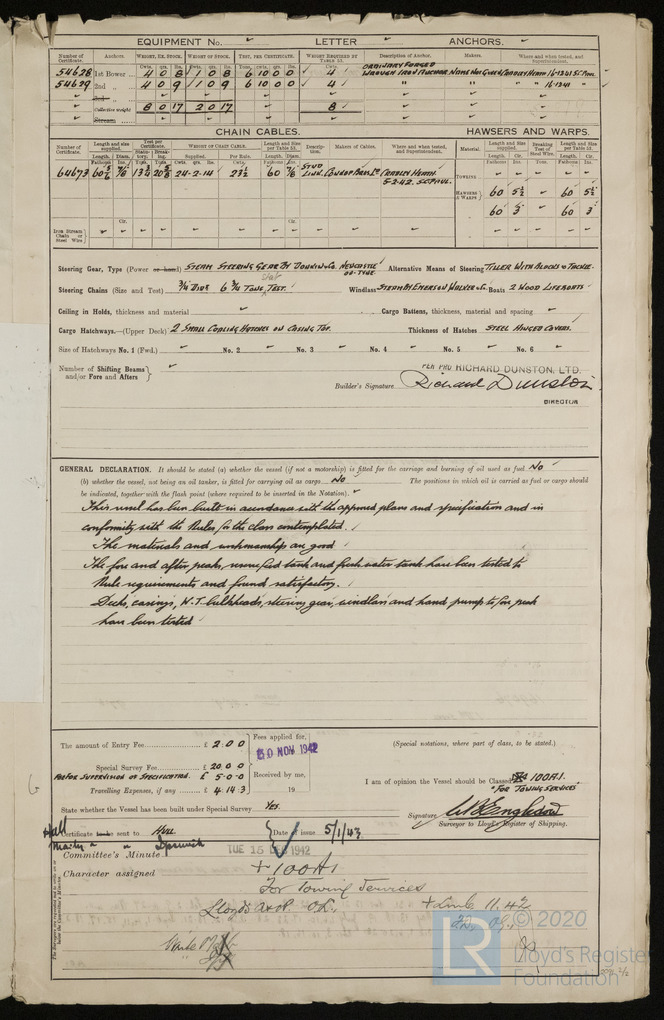 EQUIPMENT No. LETTER ANCHORS.
Number of Certificate. Anchors. WEIGHT, EX. STOCK. WEIGHT OF STOCK. TEST, PER CERTIFICATE. WEIGHT REQUIRED BY TABLE 53. Description of Anchor. Makers. Where and when tested, and Superintendent.
Cwts. qrs. lbs. Cwts. qrs. lbs. Tons. cwts. qrs. lbs. Cwts.
54628 1st Bower 4 0 8 1 0 8 6 10 0 0 4 ORDINARY FORGED WROUGH IRON
54629 2nd 4 0 9 1 0 9 6 10 0 0 4
3rd
Collective weight 8 0 17 2 0 17 8
Stream
CHAIN CABLES. HAWSERS AND WARPS.
Number of Certificate. Length and size supplied. Test per Certificate. WEIGHT OF CHAIN CABLE. Length and size per Table 53. Description. Makers of Cables. Where and when tested, and Superintendent. Material. Length and Size supplied. Breaking Test of Steel Wire. Length and Size per Table 53.
Length. Diam. Statutory. Breaking. Supplied. Per Rule. Length. Diam. Length. Cir. Length. Cir.
64673 24-2-14 23½ 60 STUD LINK CRADLEY HEATH 5-2-42. TOWLINE
HAWSERS & WARPS 60 5½ 60 5½
60 3 60 3
Iron Stream Chain or Steel Wire
Steering Gear, Type (Power or hand) STEAM STEERING GEAR BY DONKIN & Co. NEWCASTLE ON-TYNE. Alternative Means of Steering TILLER WITH BLOCKS & TACKLE.
Steering Chains (Size and Test) ¾" DIAR 6 ¾ TONS, TEST. Windlass STEAM BY EMERSON WALKER & Co. Boats 2 WOOD LIFEBOATS
Ceiling in Holds, thickness and material Cargo Battens, thickness, material and spacing
Cargo Hatchways.—(Upper Deck) 2 SMALL COALING HATCHES ON CASING TOP. Thickness of Hatches STEEL HINGED COVERS.
Size of Hatchways No. 1 (Fwd.) No. 2 No. 3 No. 4 No. 5 No. 6
Number of Shifting Beams and/or Fore and Afters
PER PRO RICHARD DUNSTON, LTD.
Builder's Signature Richard Dunston
DIRECTOR
GENERAL DECLARATION. It should be stated (a) whether the vessel (if not a motorship) is fitted for the carriage and burning of oil used as fuel No
(b) whether the vessel, not being an oil tanker, is fitted for carrying oil as cargo. No The positions in which oil is carried as fuel or cargo should
be indicated, together with the flash point (where required to be inserted in the Notation).
This vessel has been built in accordance with the approved plans and specification and in
conformity with the Rules for the class contemplated.
The materials and workmanship are good
The fore and after peaks, reserve feed tank and fresh water tank have been tested to
Rule requirements and found satisfactory.
Decks, casings, W.T. bulkheads, steering gear, windlass and hand pump to fore peak
have been tested
The amount of Entry Fee £ 2 : 0 0 Fees applied for, 30 NOV 1942 (Special notations, where part of class, to be stated.)
Special Survey Fee £ 20 0 0
FEE FOR SUPERVISION OF SPECIFICATION. £ 5-0-0 Received by me,
Travelling Expenses, if any £ 4 . 14 . 3 19
I am of opinion the Vessel should be Classed 100A1.
"FOR TOWING SERVICES"
State whether the Vessel has been built under Special Survey Yes.
Signature
Surveyor to Lloyd's Register of Shipping.
Hull Certificate to be sent to HULL Date of issue 5/1/43
Machy " " Ipswich
Committee's Minute TUE 15 DEC 1942
Character assigned + 100A1
For Towing Services
Lloyd's A & CP. + LMC 11.42
© 2020
LR Lloyd's Register Foundation